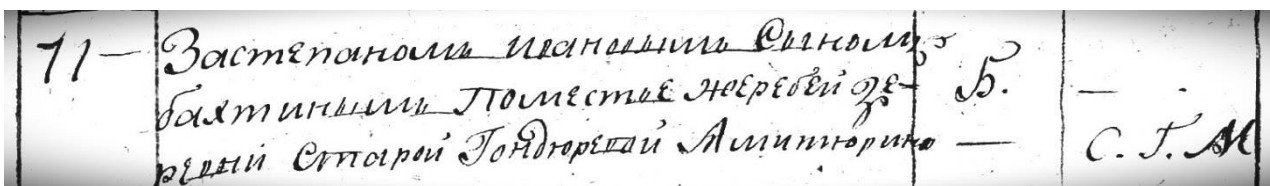 71 — Застепаномъ ивановымъ Сыномъ
бахтинымъ Поместье жеребей де-
ревни Старой Гондюревой Амитюрино
Б. —
— С. Г. М